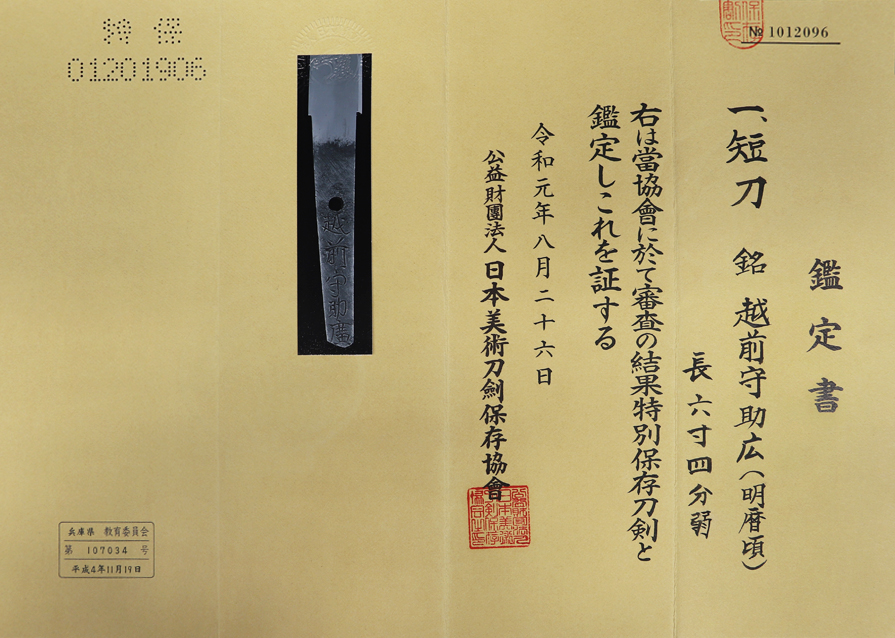 № 1012096
鑑定書
一、短刀 銘 越前守助広(明暦頃)
長六寸四分弱
右は當協會に於て審査の結果特別保存刀剣と
鑑定しこれを証する
令和元年八月二十六日
公益財團法人日本美術刀劍保存協會
越前守助廣
特保
01201906
兵庫県 教育委員会
第 107034 号
平成4年11月19日